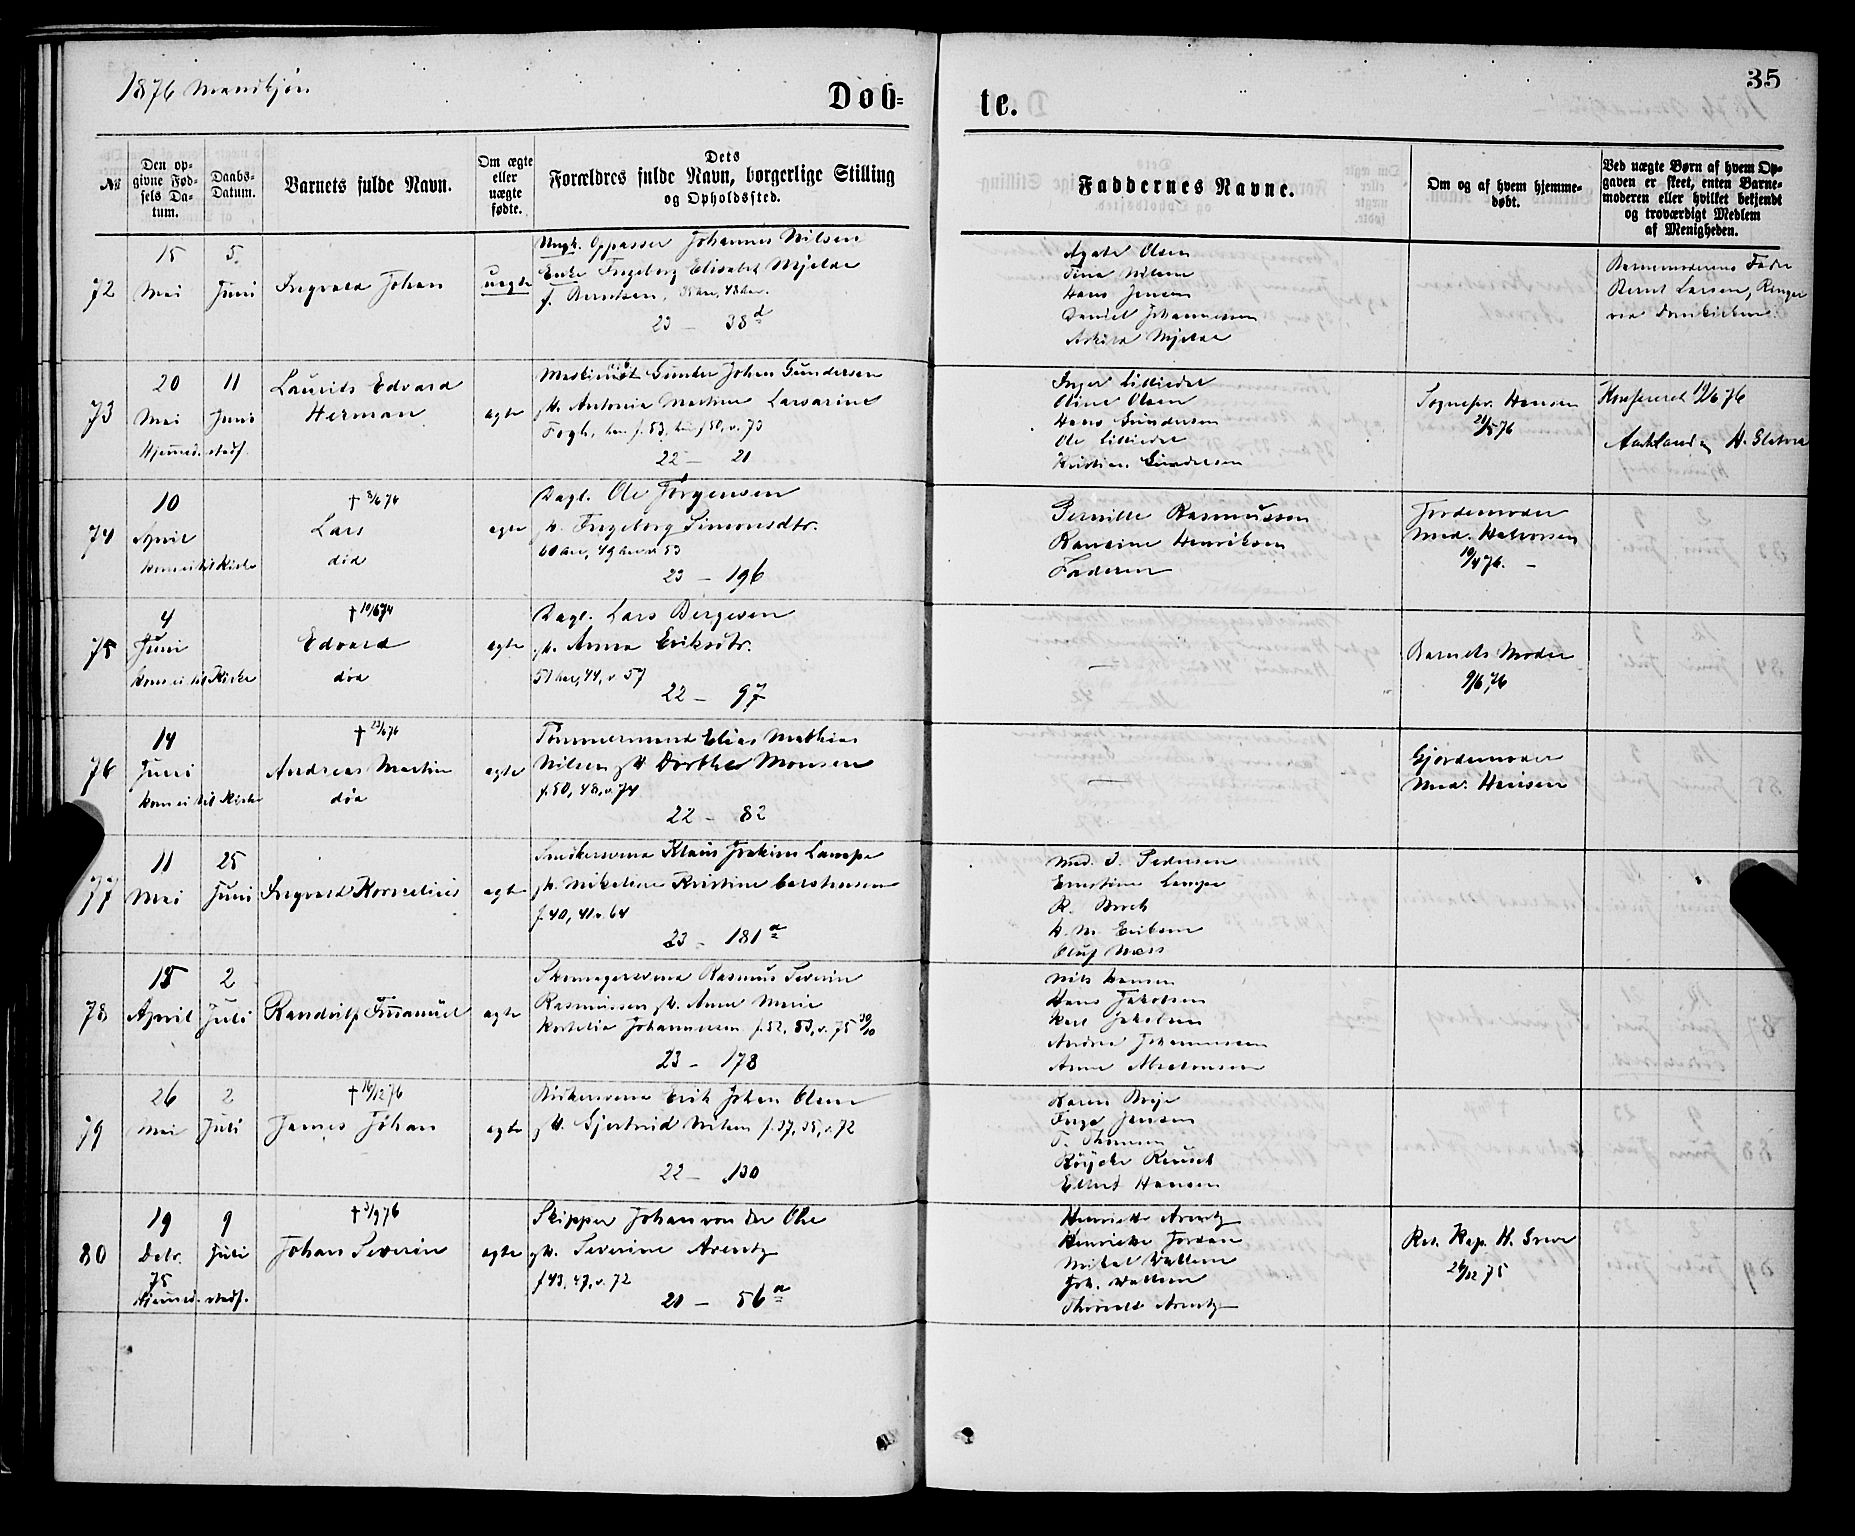 1876 Mandkjøn
Døb=
te.
35
№
Den op-
givne Fød-
sels Da-
tum.
Daabs-
Datum.
Barnets fulde Navn.
Om ægte
eller
uægte
fødte.
Dets
Forældres fulde Navn, borgerlige Stilling
og Opholdssted.
Faddernes Navne.
Om og af hvem hjemme-
døbt.
Ved uægte Børn af hvem Op-
gaven er skeet, enten Barne-
moderen eller hvilket bekjendt
og troværdigt Medlem
af Menigheden.
72
15
Mai
5.
Juni
Ingvald Johan
uægte
Ungk. Oppasser Johannes Nilsen
Enke Ingeborg Elisabet Mjelde
f. Berntsen,
23 — 38 d
Agate Olsen
Tina Nilsen
Hans Jensen
Daniel Johannessen
Mjelde
Barnemoderens Fader
Bernt Larsen, Ringer
ved Domkirken.
73
20
Mai
Hjemmed.
11
Juni
stadf.
Laurits Edvard
Herman
ægte
Gunder Johan Gundersen
H. Antonia Martine Lavarine
22 — 21
Inger Lilliedal
Oline Olsen
Hans Gundersen
Ole Lilliedal
Kristian Gundersen
Sognepr. Hansen
21/5 76
Aakland
74
10
April
kom ei til Kirke
† 3/6 74
Lars
død
ægte
Dagl. Ole Jørgensen
H. Ingeborg Simonsdtr.
23 — 196
Pernille Rasmussen
Ransine Henriksen
Faderen
Jordemoder
Mad. Halvorsen
10/4 76. —
75
4
Juni
kom ei til Kirke
† 10/6 74
Edvard
død
ægte
Dagl. Lars Børgesen
H. Anna Eriksdtr.
51 har, 44, v. 57
22 — 97
—
Barnets Moder
9/6 76
76
14
Juni
kom ei til Kirke
† 23/6 76
Andreas Martin
død
ægte
Tømmermand Elias Mathias
Nilsen H. Dorthea Monsen
f. 50, 48, v. 74
22 — 82
—
Gjordemoder
Mad. Hansen
77
11
Mai
25
Juni
Ingvald Kornelius
ægte
Klaus Joakim Lampe
H. Mikeline Kristine Carstensen
f. 40, 41 v. 64
23 — 181 a
Mad. J. Pedersen
Ernstine Lampe
Oluf Næss
78
15
April
2
Juli
Randulf Imanuel
ægte
Skomagersvend Rasmus Severin
Rasmussen H. Anne Marie
Kornelia Johannessen f. 52, 53, v. 75 30/10
23 — 178
Nils Hansen
Hans Jakobsen
Karl Jakobsen
Andrea Johannessen
79
26
Mai
2
Juli
† 16/12 76
James Johan
ægte
Erik Johan Olsen
H. Gjertrud Nilsen f. 37, 35, v. 72
22 — 130
Karen Meyer
Inge Jensen
T. Thomsen
Edvard Hansen
80
19
Debr.
75
Hjemmed.
9
Juli
stadf.
† 3/9 76
Johan Severin
ægte
Skipper Johan von der Ohe
H. Severine Arentz
f 43, 47, v. 72
21 — 56 a
Henriette Arentz
Henriette Jordan
Mikal Wallem
Joh. Wallem
Thorvald Arentz
Res. Kap. H. Greve
26/12 75